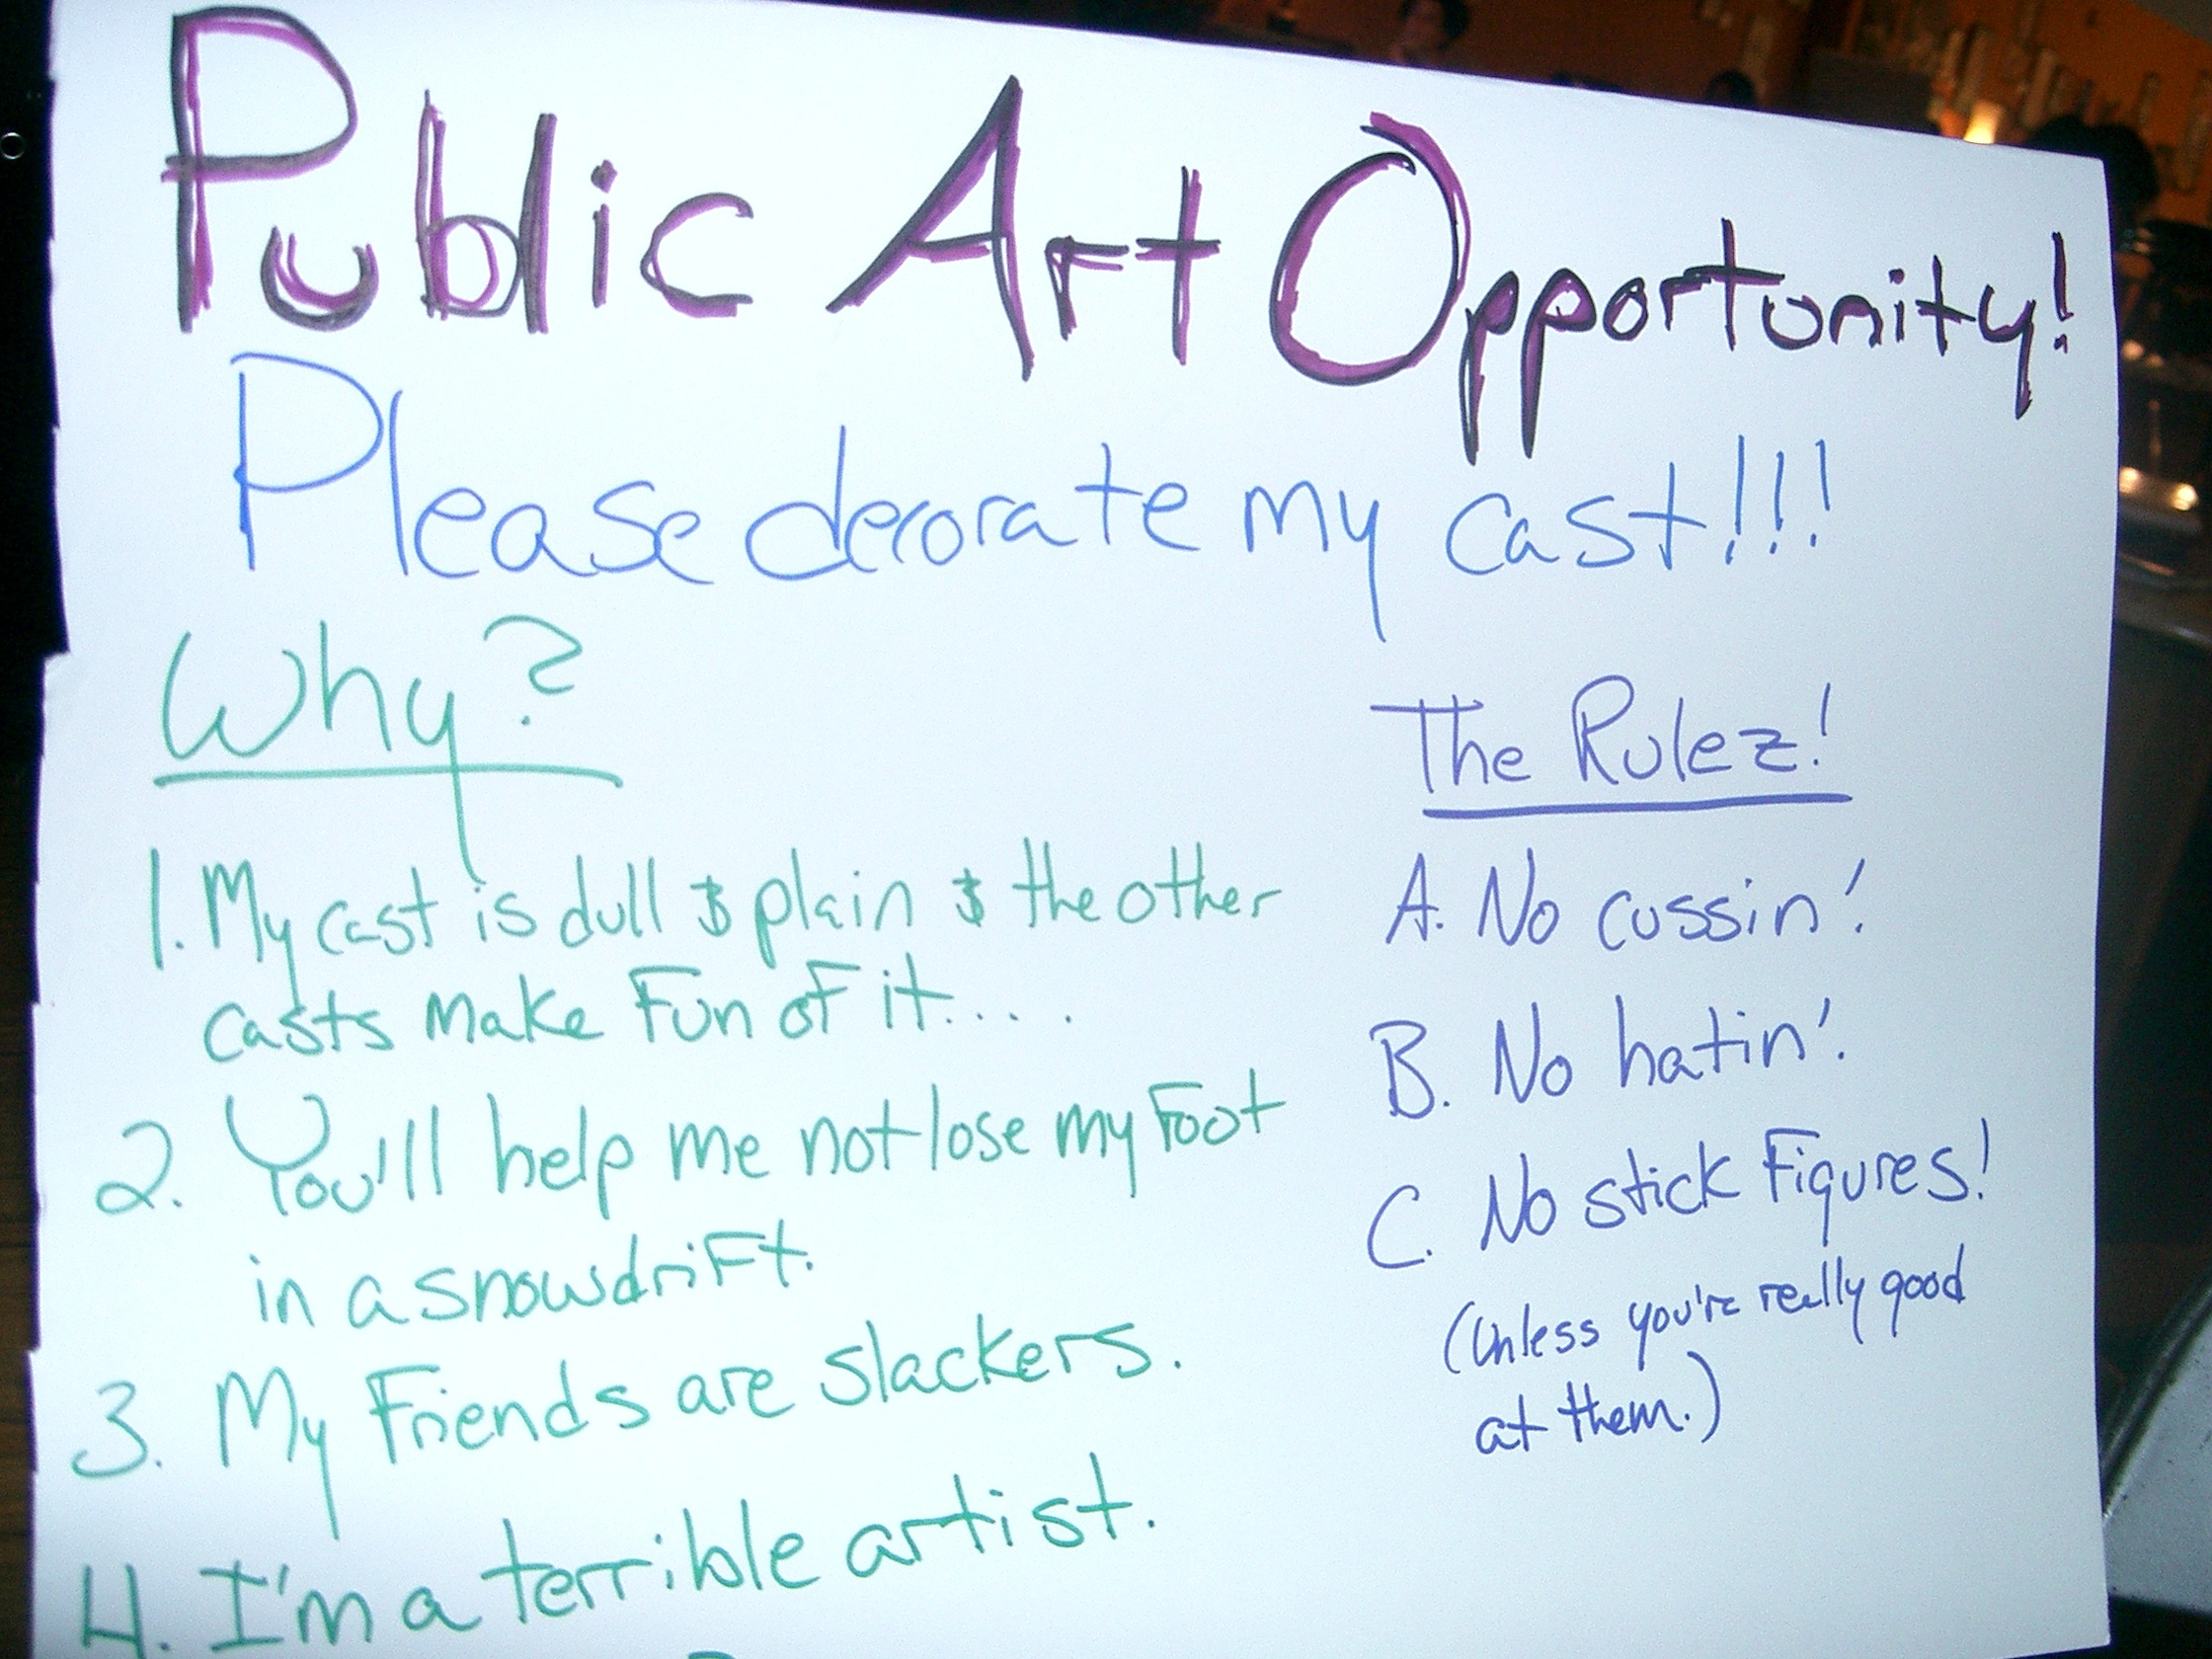 Public Art Opportunity!
Please decorate my cast!!!
Why?
1. My cast is dull & plain & the other
casts make Fun of it....
2. You'll help me not lose my Foot
in a snowdrift.
3. My Friends are slackers.
4. I'm a terrible artist.
The Rulez!
A. No cussin'!
B. No hatin'!
C. No stick Figures!
(Unless you're really good
at them.)